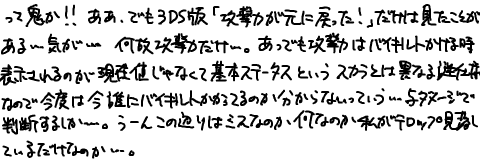 って鬼か!! ああ、でも3DS版「攻撃力が元に戻った!」だけは見たことが
ある…気が… 何故攻撃だけ…。あっでも攻撃はバイキルトかける時
表示されるのが現在値じゃなくて基本ステータスというスカラとは異なる
なので今度は今誰にバイキルトかかってるのか分からないっていう…与ダメージで
判断するしか…。うーんこの辺りはミスなのか何なのか私がテロップ見逃し
ているだけなのか…。